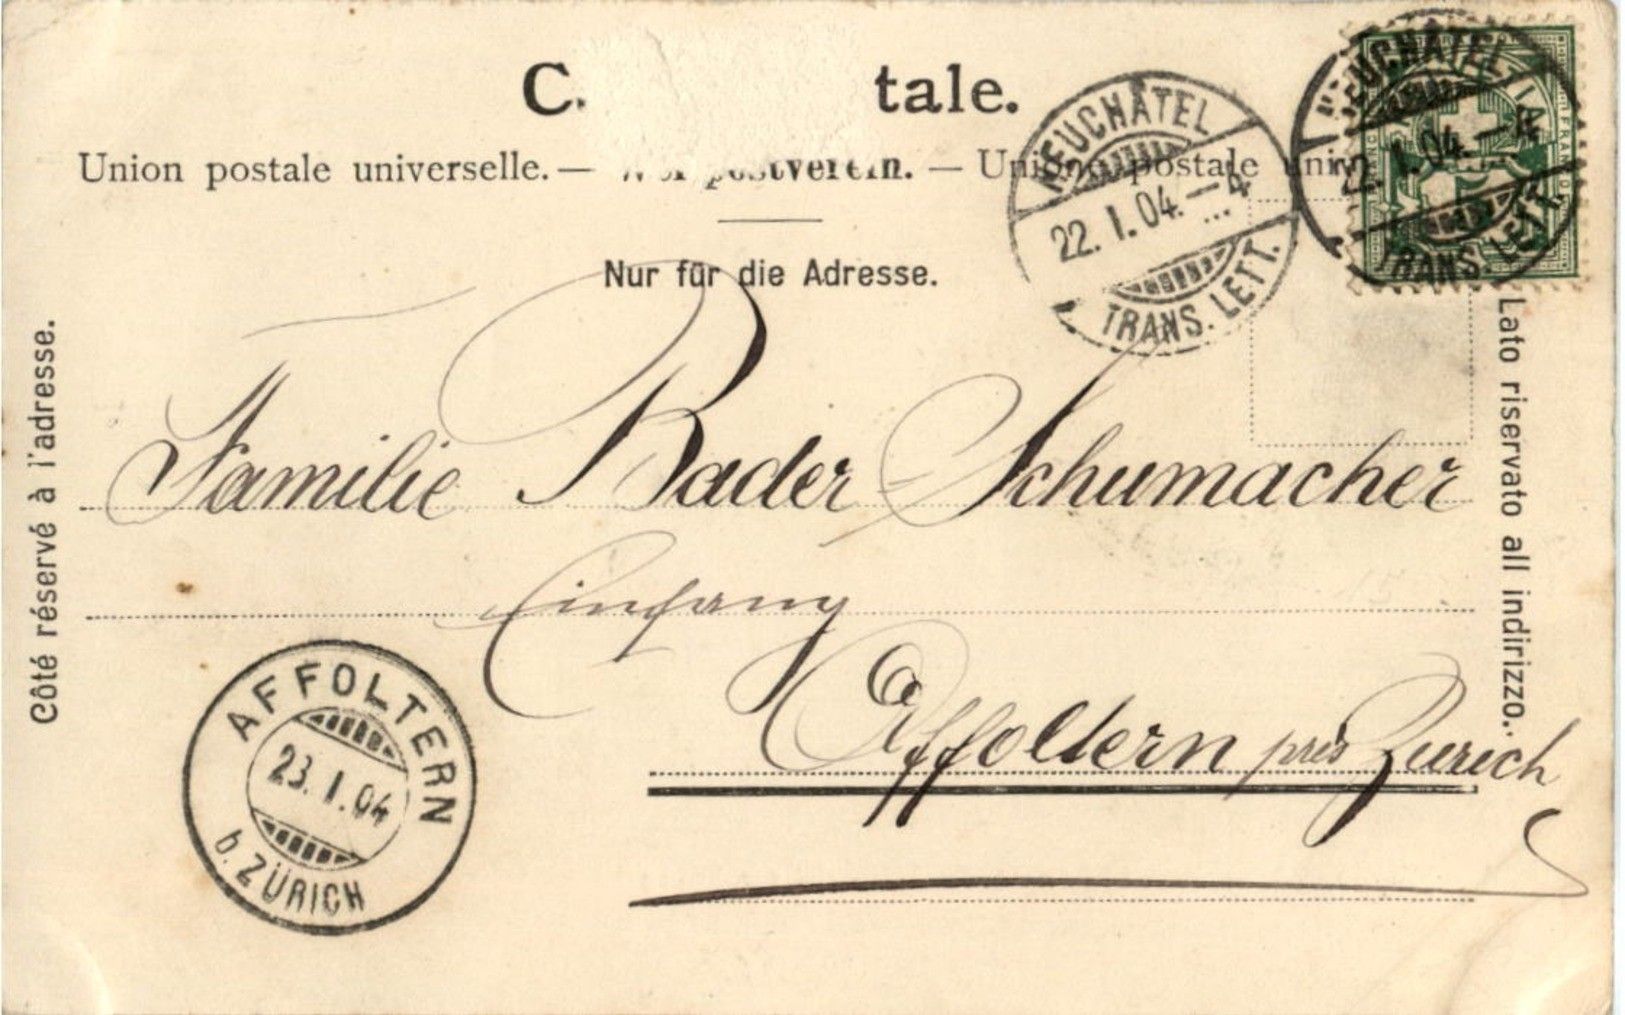 C. tale.
Union postale universelle. — postverein. — Union postale univ
Nur für die Adresse.
NEUCHÂTEL
22. I. 04. – 4
TRANS. LETT.
NEUCHÂTEL
I. 04. – 4
TRANS. LETT.
Côté réservé à l'adresse.
Lato riservato all indirizzo.
Familie Bader-Schumacher
Einfang
Affoltern près Zürich
AFFOLTERN
23. I. 04
b. ZÜRICH